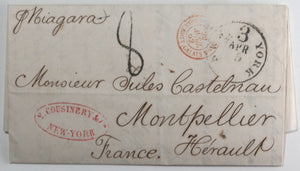 p Niagara
8
3
YORK
APR
5
CALAIS
Monsieur Jules Castelnau
Montpellier
France. Hérault
COUSINERY & Co
NEW-YORK